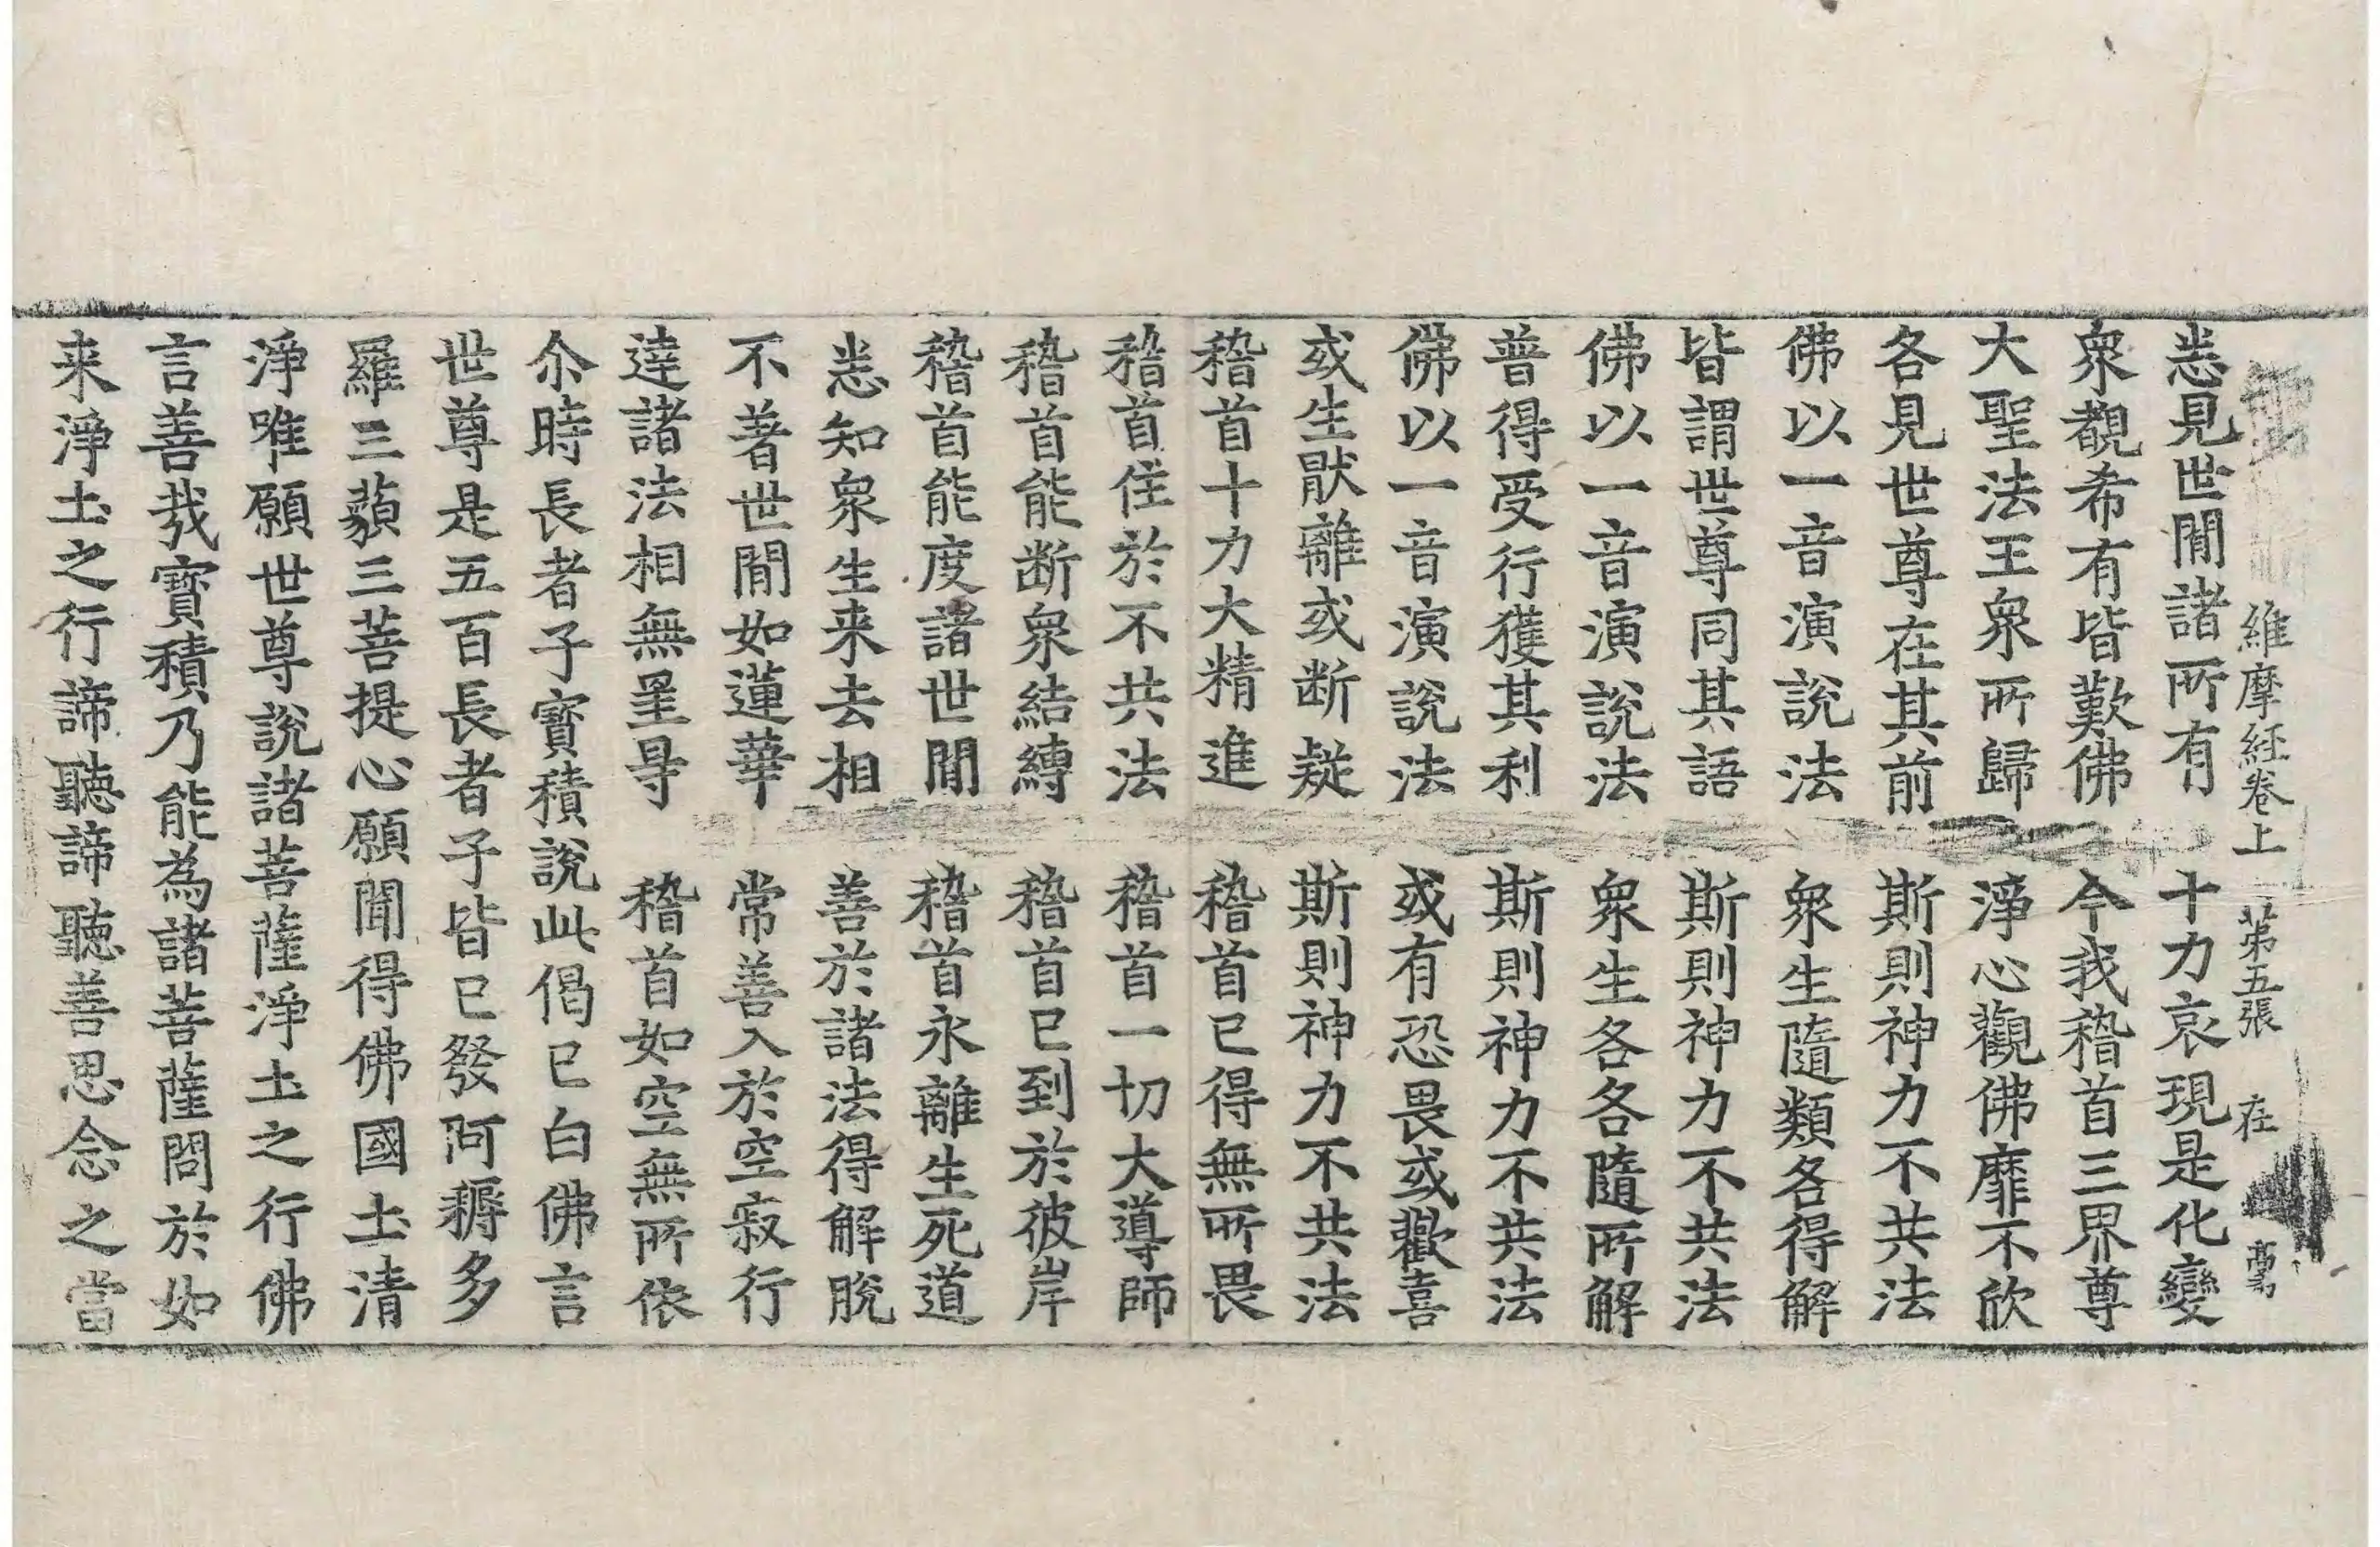 維摩經卷上 苐五張 在
悉見世間諸所有 十力哀現是化變
衆覩希有皆歎佛 今我稽首三界尊
大聖法王衆所歸 淨心觀佛靡不欣
各見世尊在其前 斯則神力不共法
佛以一音演說法 衆生隨類各得解
皆謂世尊同其語 斯則神力不共法
佛以一音演說法 衆生各各隨所解
普得受行獲其利 斯則神力不共法
佛以一音演說法 或有恐畏或歡喜
或生猒離或断疑 斯則神力不共法
稽首十力大精進 稽首已得無所畏
稽首住於不共法 稽首一切大導師
稽首能断衆結縛 稽首已到於彼岸
稽首能度諸世間 稽首永離生死道
悉知衆生来去相 善於諸法得解脫
不著世間如蓮華 常善入於空寂行
達諸法相無罣㝵 稽首如空無所依
尒時長者子寶積說此偈已白佛言
世尊是五百長者子皆已發阿耨多
羅三藐三菩提心願聞得佛國土清
淨唯願世尊說諸菩薩淨土之行佛
言善哉寶積乃能為諸菩薩問於如
来淨土之行諦聽諦聽善思念之當